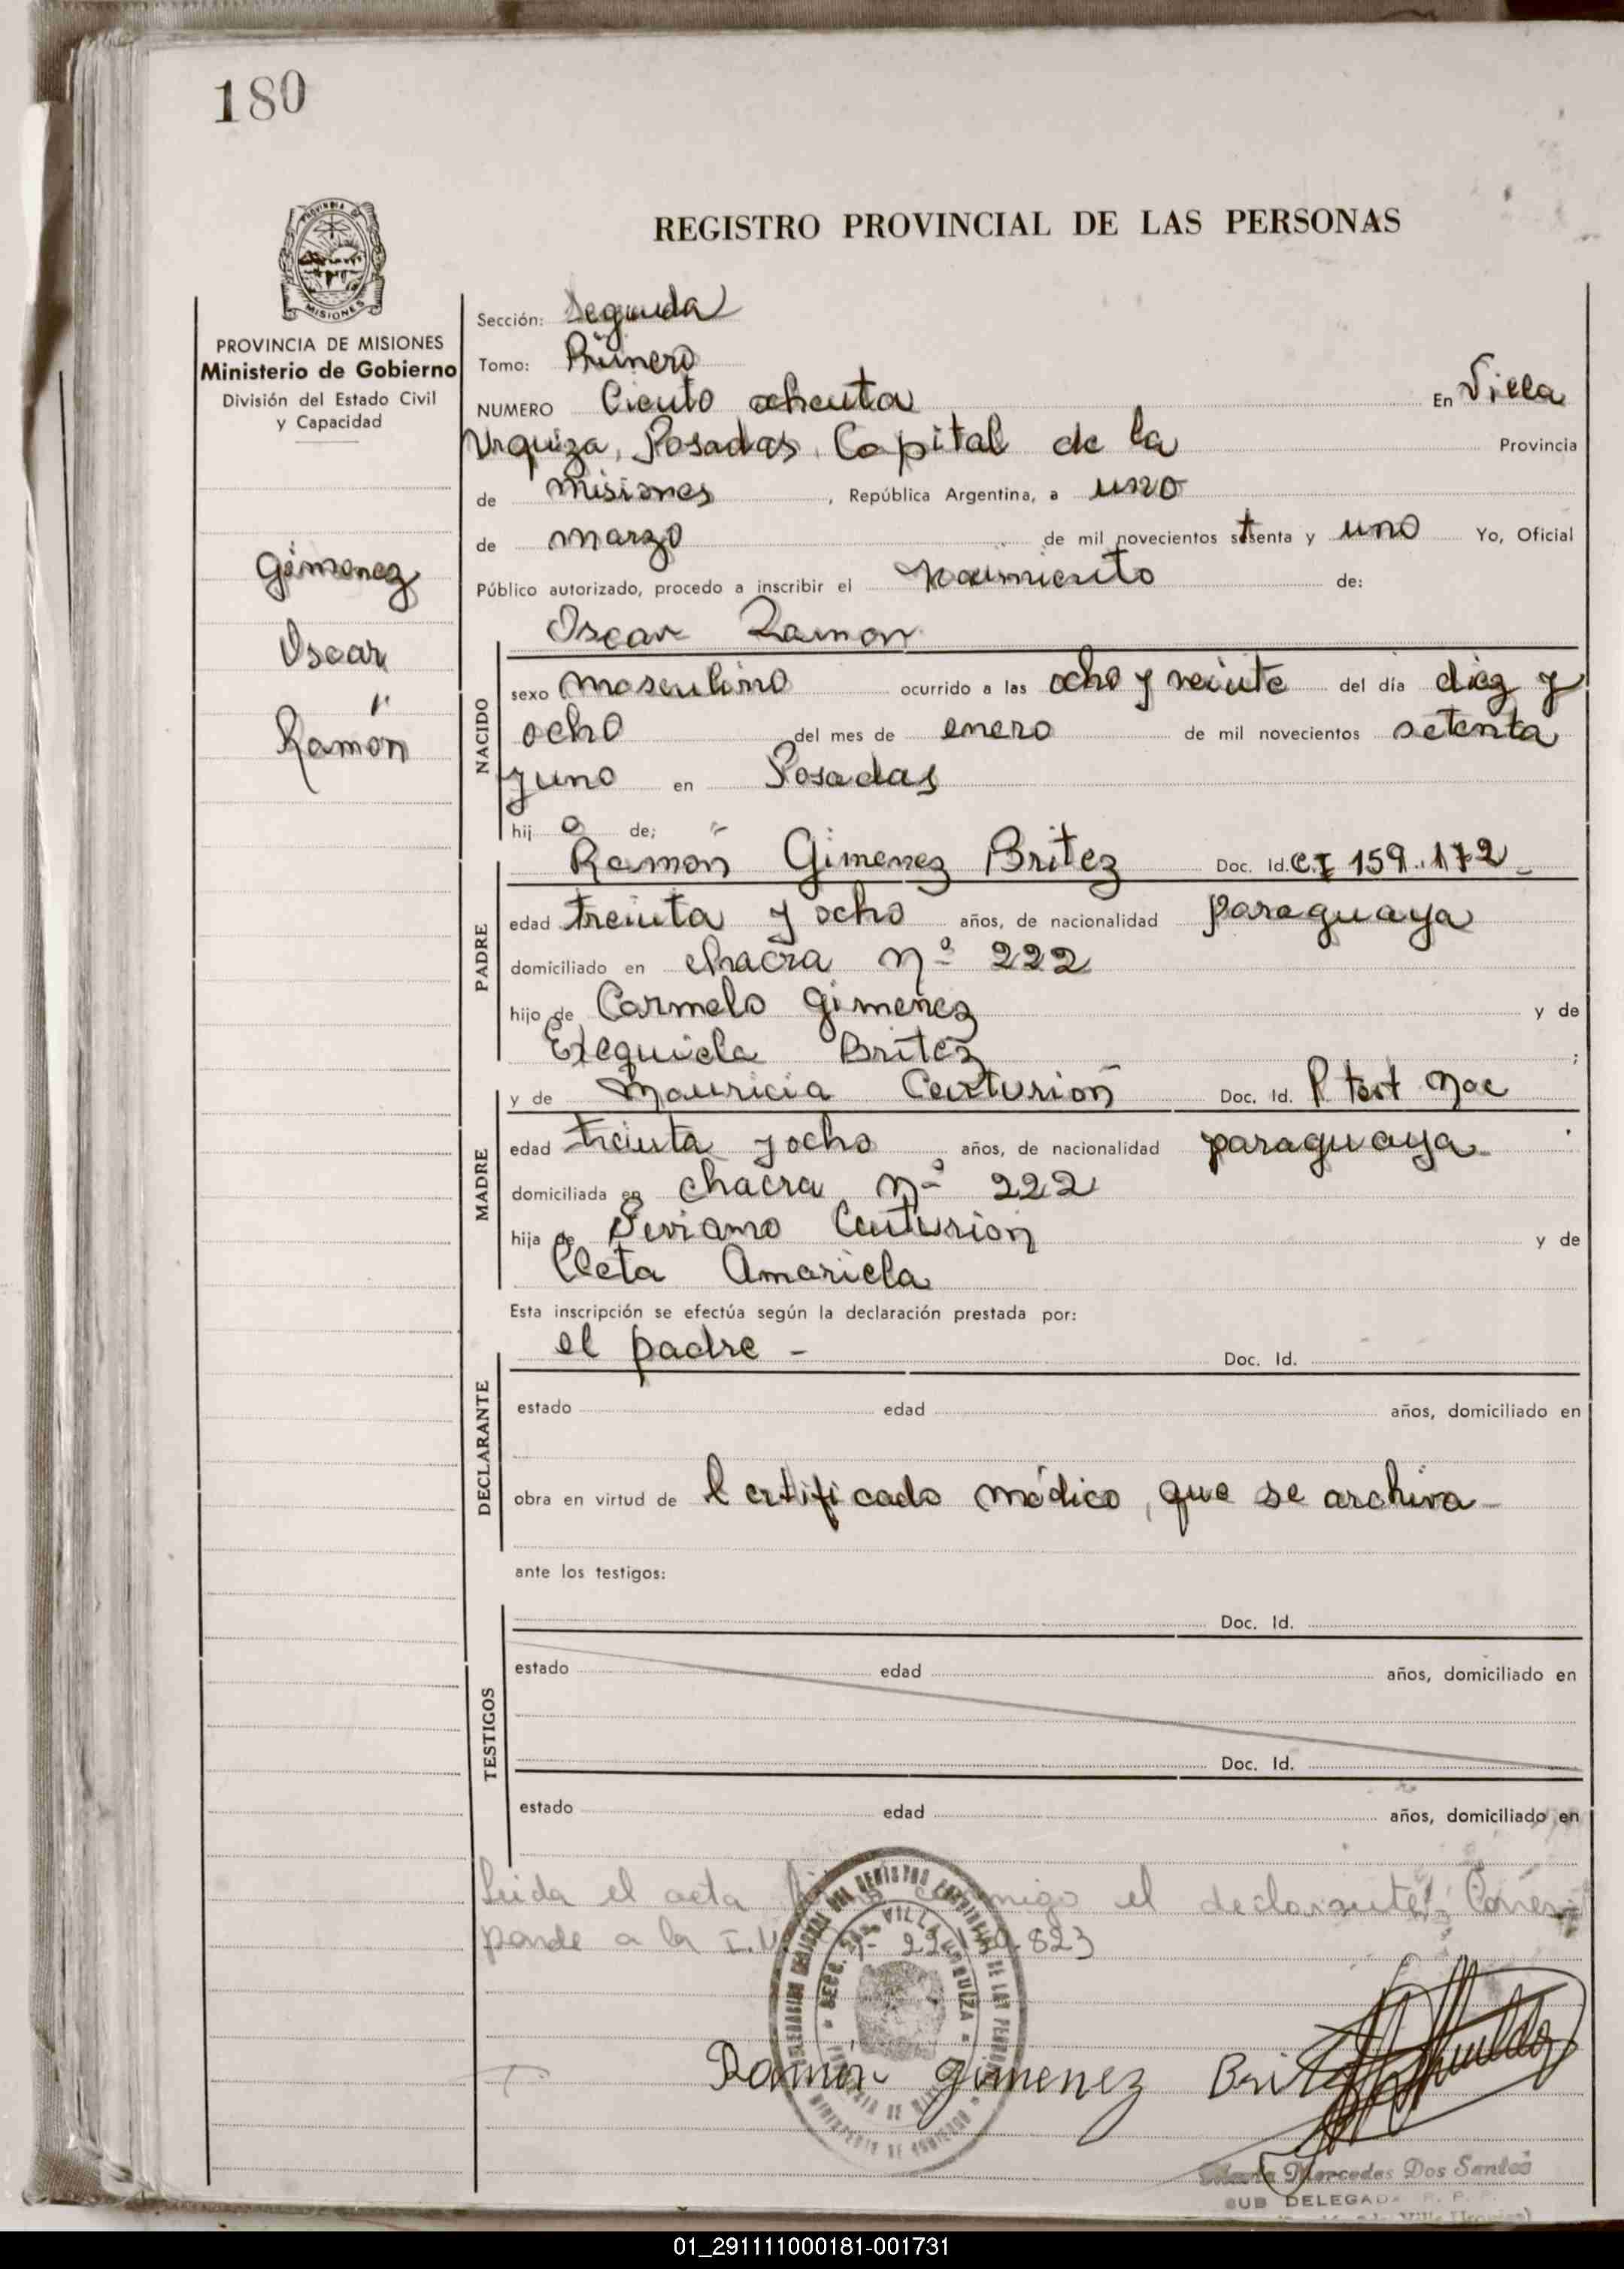 180
REGISTRO PROVINCIAL DE LAS PERSONAS
PROVINCIA DE
MISIONES
PROVINCIA DE MISIONES
Ministerio de Gobierno
División del Estado Civil
y Capacidad
Gimenez
Oscar
Ramón
Sección: Segunda
Tomo: Primero
NUMERO Ciento ochenta En Villa
Urquiza, Posadas, Capital de la Provincia
de Misiones, República Argentina, a uno
de marzo de mil novecientos setenta y uno Yo, Oficial
Público autorizado, procedo a inscribir el nacimiento de:
Oscar Ramon
NACIDO
sexo masculino ocurrido a las ocho y veinte del día diez y
ocho del mes de enero de mil novecientos setenta
y uno en Posadas
hij o de;
PADRE
Ramón Gimenez Britez Doc. Id. C.I 159.172
edad treinta y ocho años, de nacionalidad paraguaya
domiciliado en chacra nº 222
hijo de Carmelo Gimenez y de
Exequiela Britez ;
MADRE
y de Mauricia Centurión Doc. Id. P. test Nac
edad treinta y ocho años, de nacionalidad paraguaya
domiciliada en chacra nº 222
hija de Centurion y de
Cleta Amariela
Esta inscripción se efectúa según la declaración prestada por:
DECLARANTE
el padre - Doc. Id.
estado edad años, domiciliado en
obra en virtud de Certificado médico, que se archiva
ante los testigos:
TESTIGOS
Doc. Id.
estado edad años, domiciliado en
Doc. Id.
estado edad años, domiciliado en
Leida el acta conmigo el declarante. Corres-
ponde a la 823
VILLA URQUIZA
Ramón Gimenez Britez
Mercedes Dos Santos
SUB DELEGADA R. P. P.
01_291111000181-001731